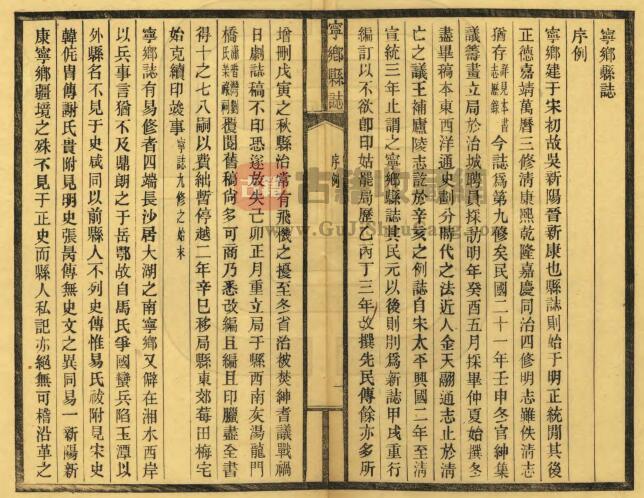 寧鄉縣誌
序例
寧鄉建于宋初故吳新陽晉新康也縣誌則始于明正統閒其後
正德嘉靖萬曆三修清康熙乾隆嘉慶同治四修明志雖佚清志
猶存詳見本書志歷錄今誌爲第九修矣民國二十一年壬申冬官紳集
議籌畫立局於治城聘員採訪明年癸酉五月採畢仲夏始撰冬
盡畢稿本東西洋通史劃分時代之法近人金天翮通志止於清
亡之議王補廬陵志訖於辛亥之例誌自宋太平興國二年至清
宣統三年止謂之寧鄉縣誌其民元以後則別爲新誌甲戌重行
編訂以不欲卽印姑罷局歷乙丙丁三年故撰先民傳餘亦多所
寧鄉縣誌
序例
一
增刪戊寅之秋縣治常有飛機之擾至冬省治被焚紳耆議戰禍
日劇誌稿不印恐遂放失己卯正月重立局于縣西南灰湯龍門
橋氏業祠覆閱舊稿尚多可商乃悉改編且編且印臘盡全書
得十之七八嗣以費絀暫停越二年辛巳移局縣東郊莓田梅宅
始克續印竣事寧誌九修之始末
寧鄉誌有易修者四端長沙居大湖之南寧鄉又僻在湘水西岸
以兵事言猶不及鼎朗之于岳鄂故自馬氏爭國蠻兵陷玉潭以
外縣名不見于史咸同以前縣人不列史傳惟易氏祓附見宋史
韓侂胄傳謝氏貴附見明史張昺傳無史文之異同易一新陽新
康寧鄉疆境之殊不見于正史而縣人私記亦絕無可稽沿革之
古籍收藏網
www.GuJiShuCang.com